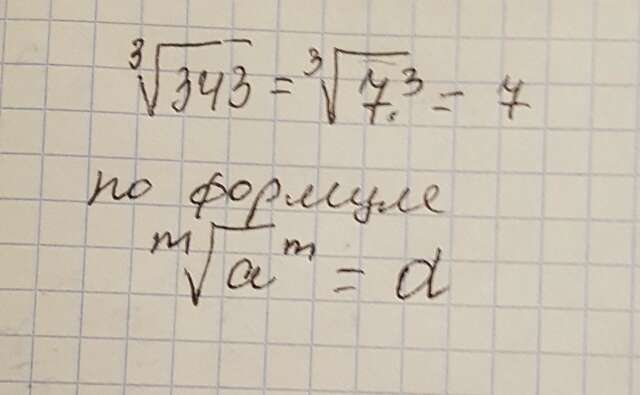 ∛343 = ∛7³ = 7
по формуле
ᵐ√aᵐ = a